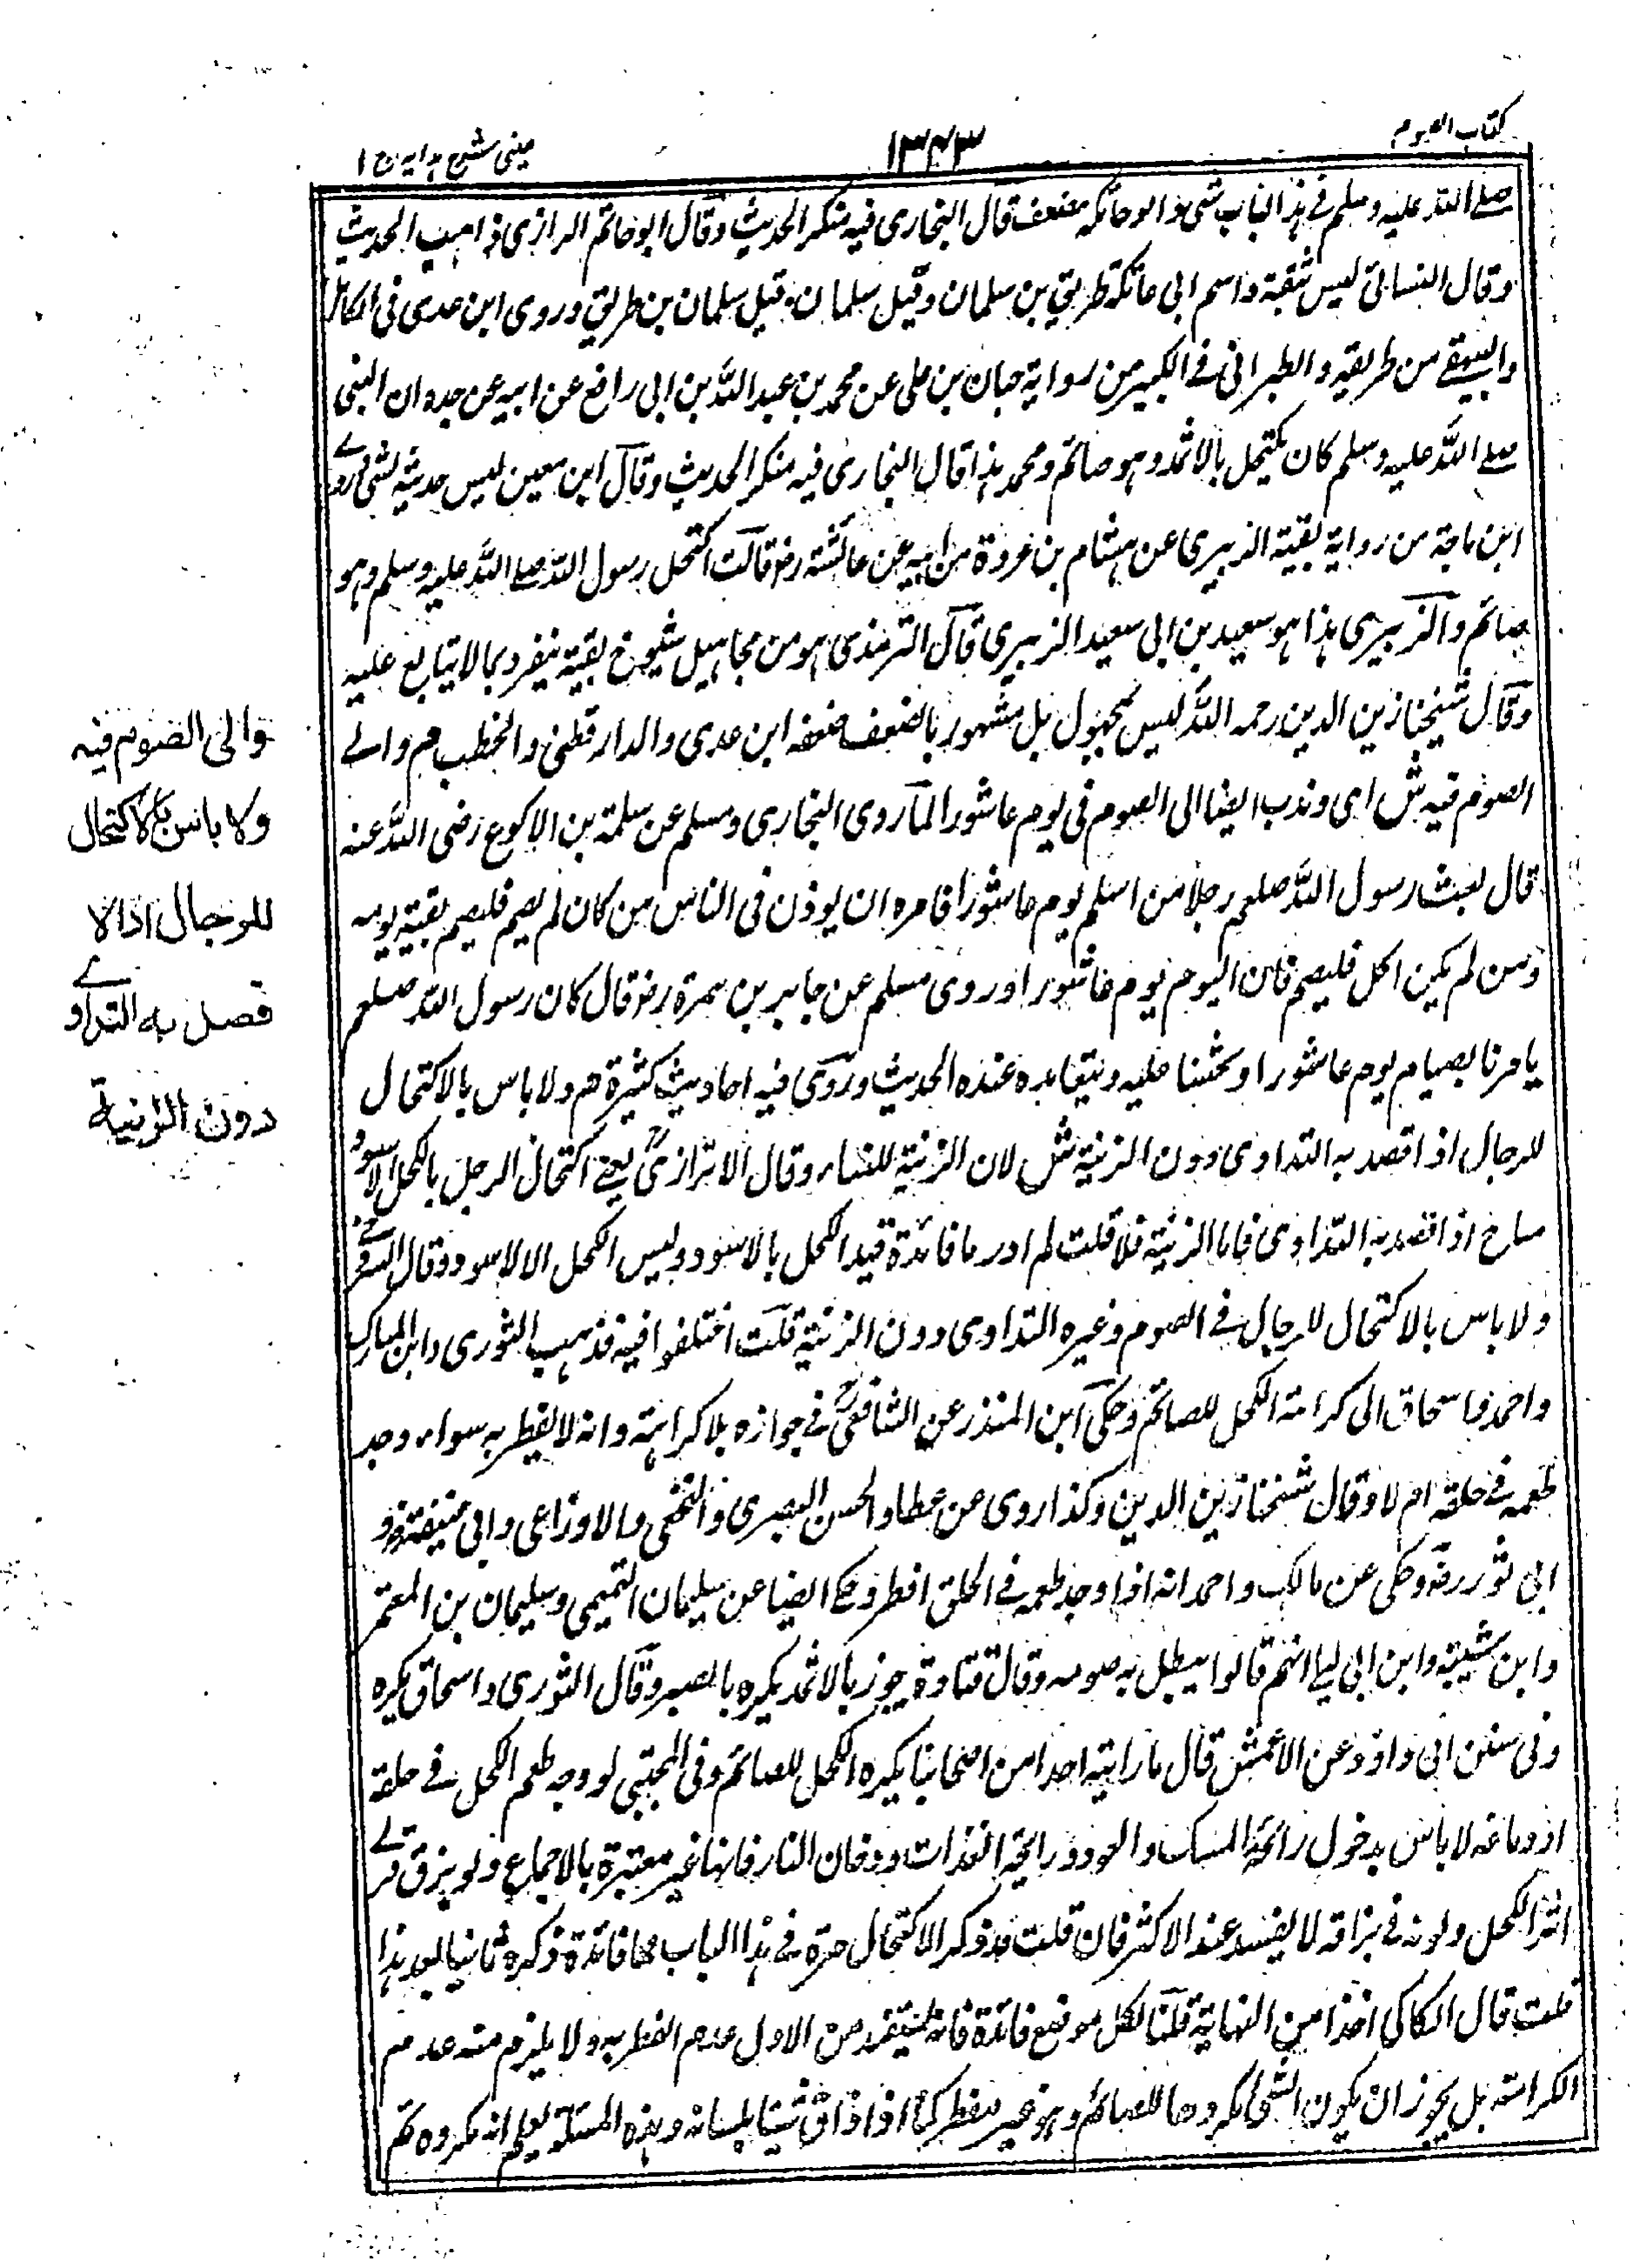 كتاب الصوم
١٣٤٣
عينى شرح هدايه ج ١
صلے الله عليه وسلم فے هذا الباب شئ وابو عاتكة مضعف قال البخارى فيه منكر الحديث وقال ابو حاتم الرازى ذاهب الحديث
وقال النسائى ليس بثقة واسم ابى عاتكة طريف بن سلمان وقيل سلمان وقيل سلمان بن طريف وروى ابن عدى فى الكامل
والبيهقے من طريقه والطبرانى فے الكبير من رواية حبان بن على عن محمد بن عبد الله بن ابى رافع عن ابيه عن جده ان النبى
صلے الله عليه وسلم كان يكتحل بالاثمد وهو صائم ومحمد هذا قال البخارى فيه منكر الحديث وقال ابن معين ليس حديثه بشئ وروے
ابن ماجة من رواية بقية الزبيرى عن هشام بن عروة عن ابيه عن عائشة رض قالت اكتحل رسول الله صلے الله عليه وسلم وهو
صائم والزبيرى هذا هو سعيد بن ابى سعيد الزبيرى قال الترمذى هو من مجاهيل شيوخ بقية ينفرد بما لا يتابع عليه
وقال شيخنا زين الدين رحمه الله ليس بمجهول بل مشهور بالضعف ضعفه ابن عدى والدارقطنى والخطيب م والے
الصوم فيه ش اى وندب ايضا الى الصوم فى يوم عاشورا لما روى البخارى ومسلم عن سلمة بن الاكوع رضى الله عنه
قال بعث رسول الله صلعم رجلا من اسلم يوم عاشورا فامره ان يوذن فى الناس من كان لم يصم فليصم بقية يومه
ومن لم يكن اكل فليصم فان اليوم يوم عاشورا وروى مسلم عن جابر بن سمرة رض قال كان رسول الله صلعم
يامرنا بصيام يوم عاشورا ويحثنا عليه ويتعاهده عنده الحديث وروى فيه احاديث كثيرة م ولا باس بالاكتحال
للرجال اذا قصد به التداوى دون الزينة ش لان الزينة للنساء وقال الاترازى يعنے اكتحال الرجل بالكحل الاسود
مباح اذا قصد به التداوى فاما الزينة فلا قلت لم ادر ما فائدة قيد الكحل بالاسود وليس الكحل الا الاسود وقال السغناقے
ولا باس بالاكتحال للرجال فے الصوم وغيره التداوى دون الزينة قلت اختلفوا فيه فذهب الثورى وابن المبارك
واحمد واسحاق الى كراهة الكحل للصائم وحكى ابن المنذر عن الشافعى فے جوازه بلا كراهة وانه لا يفطر به سواء وجد
طعمه فے حلقه ام لا وقال شيخنا زين الدين وكذا روى عن عطاء والحسن البصرى والنخعى والاوزاعى وابى حنيفة رض و
ابى ثور رض وحكى عن مالك واحمد انه اذا وجد طعمه فے الحلق افطر وحكے ايضا عن سليمان التيمى وسليمان بن المعتمر
وابن شيبة وابن ابى ليلے انهم قالوا يبطل به صومه وقال قتادة يجوز بالاثمد يكره بالصبر وقال الثورى واسحاق يكره
وفى سنن ابى داؤد عن الاعمش قال ما رايت احدا من اصحابنا يكره الكحل للصائم وفى المجتبى لو وجد طعم الكحل فے حلقه
او دماغه لا باس بدخول رائحة المسك والعود ورائحة القذرات ودخان النار فانها غير معتبرة بالاجماع ولو بزق فراے
اثر الكحل ولونه فے بزاقه لا يفسد عند الاكثر فان قلت قد ذكر الاكتحال مرة فے هذا الباب فما فائدة ذكره ثانيا بعد هذا
قلت قال الكاكى اخذا من النهاية قلنا لكل موضع فائدة فانه يستفد من الاول عدم الفطر به ولا يلزم منه عدم
الكراهة بل يجوز ان يكون الشئ مكروها للصائم وهو غير مفطر كما اذا ذاق شيئا بلسانه وبهذه المسئلة يعلم انه مكروه ثم
والى الصوم فيه
ولا باس بالاكتحال
للرجال اذا لا
قصد به التداوے
دون الزينة